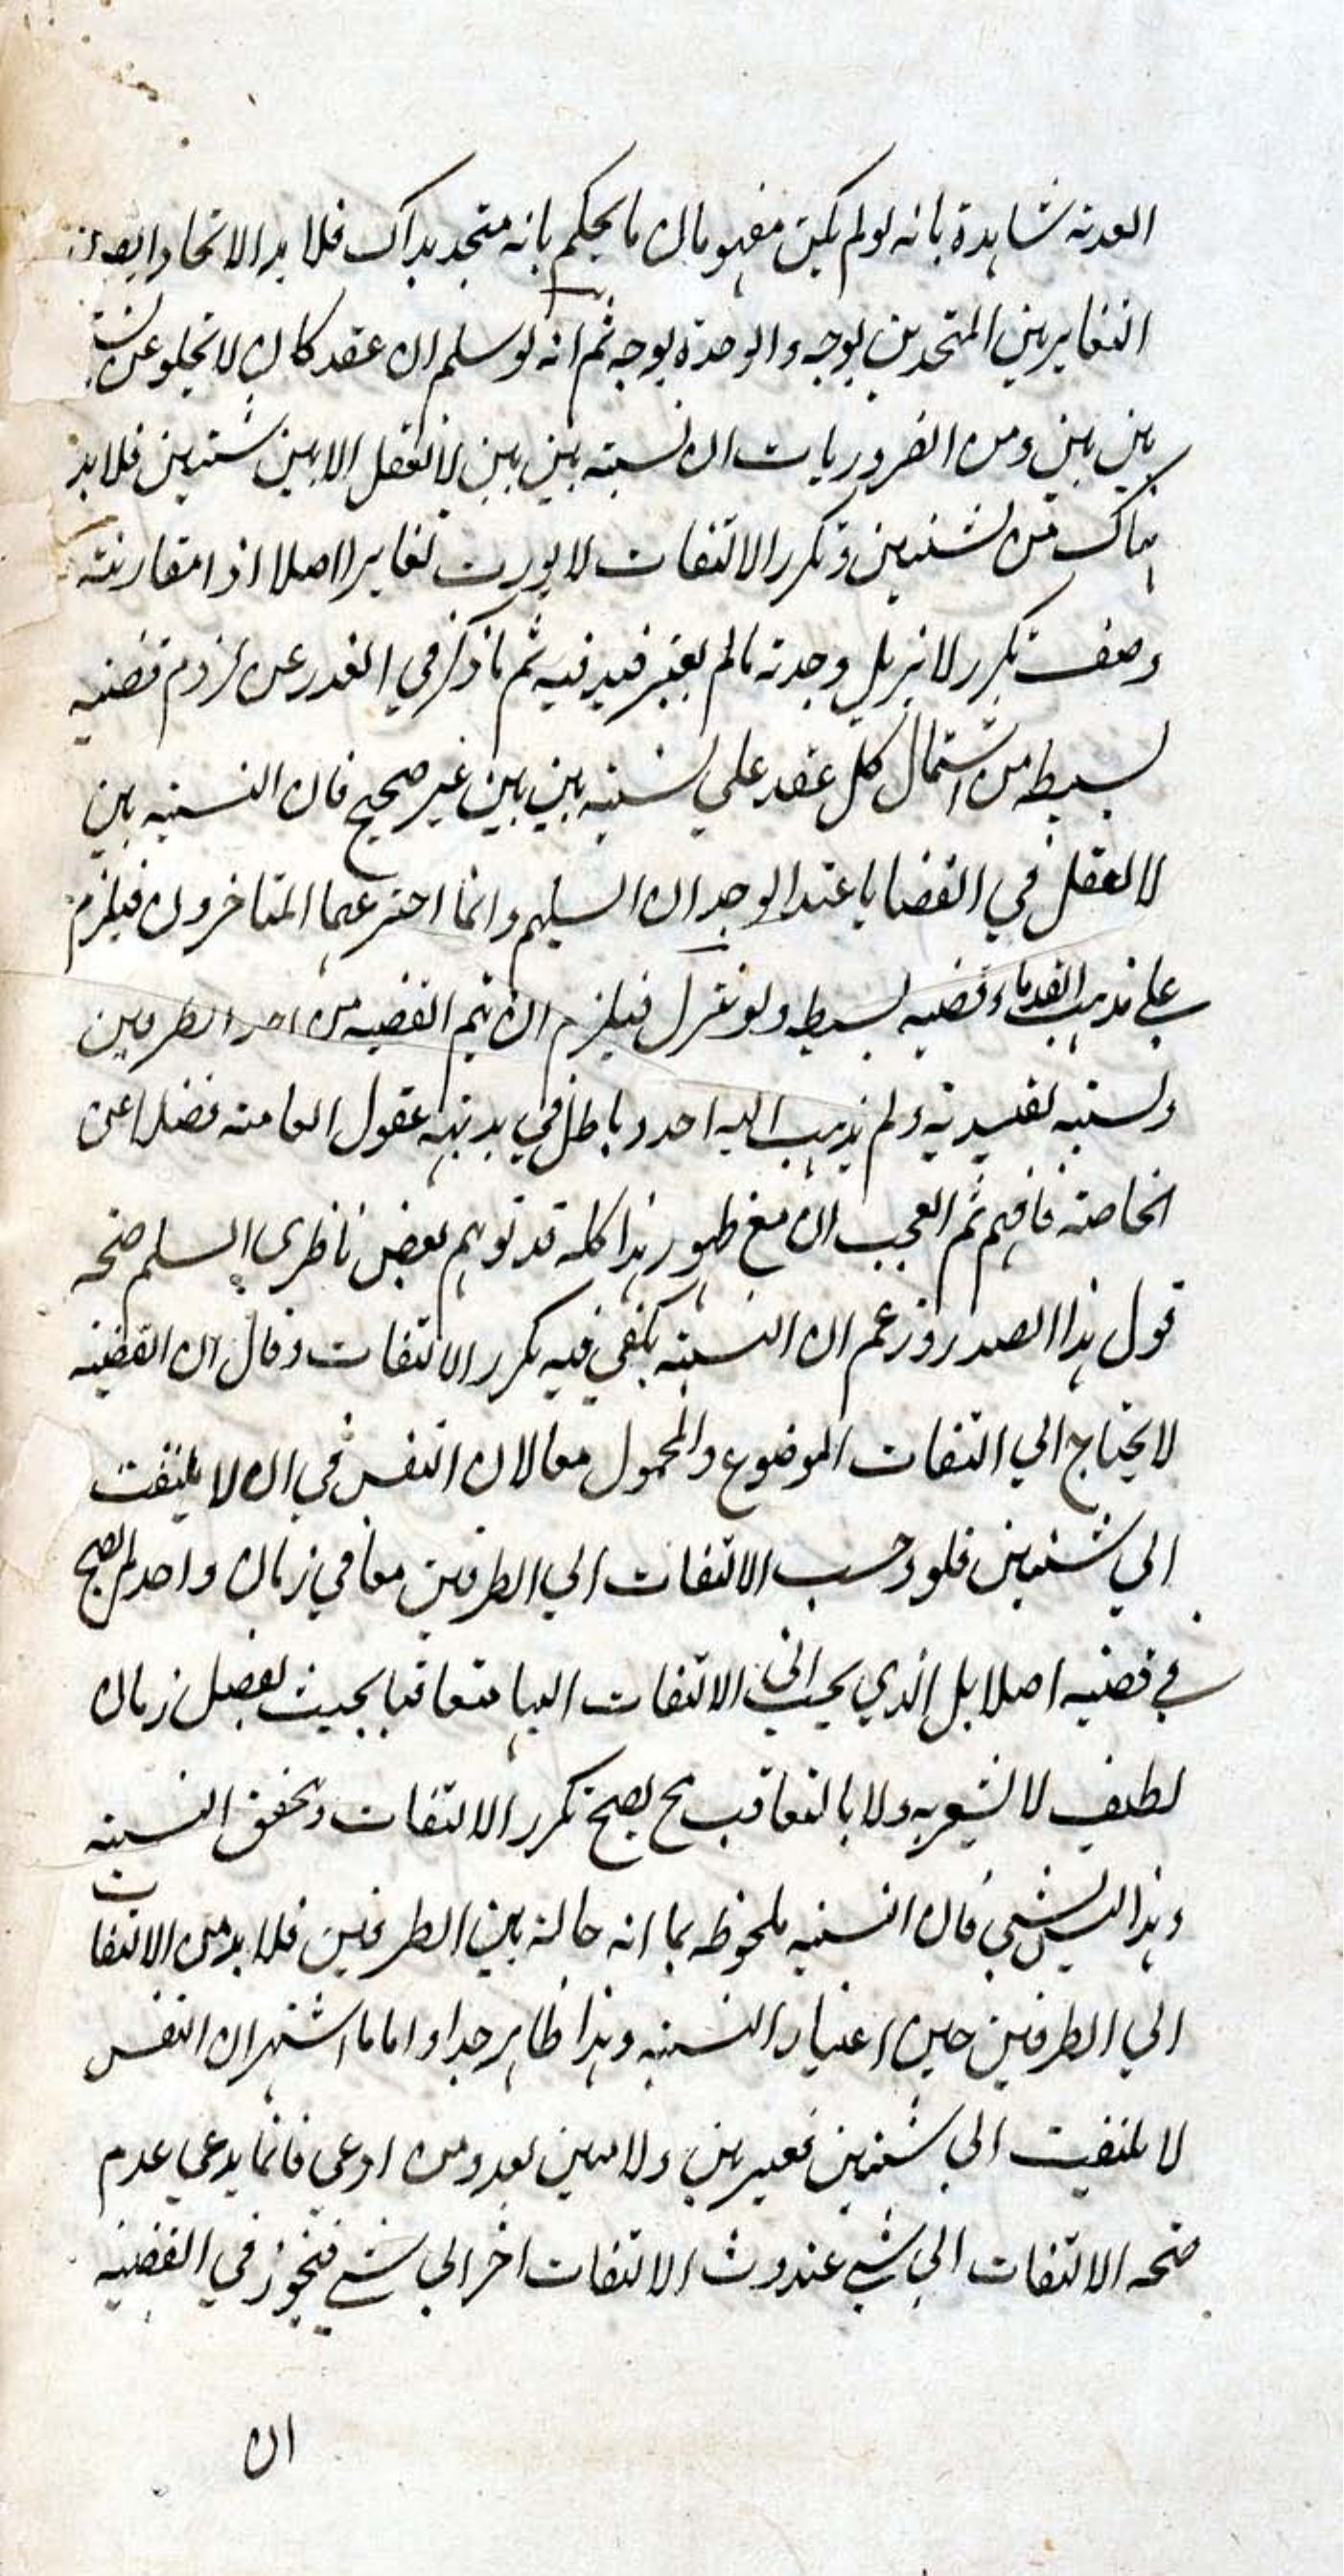 العدية شاهدة بانه لو لم يكن مفهومان ما يحكم بانه متحد بذاك فلا بد الاتحاد
التغاير بين المتحدين بوجه والوحدة بوجه ثم انه لو سلم ان عقد كان لا يخلو عن نسبة
بين بين ومن الضروريات ان نسبته بين بين لا تعقل الا بين شيئين فلا بد
هناك من شيئين وتكرر الالتفات لا يورث تغايرا اصلا اذا مقارنته
وصف تكرر لا يزيل وحدته ما لم يعتبر قيد فيه ثم ما ذكر في العذر عن لزوم قضية
بسيطه من اشتمال كل عقد على نسبته بين بين غير صحيح فان النسبته بين
لا تعقل في القضايا عند الوجدان السليم وانما اخترعها المتاخرون فيلزم
على مذهب القدماء قضيه بسيطه ولو تنزل فيلزم ان يتم القضيه من احد الطرفين
ونسبته تقييديه ولم يذهب اليه احد وباطل في بديهه عقول العامته فضلا عن
الخاصته فافهم ثم العجب ان مع ظهور هذا كله قد توهم بعض ناظرى السلم صحه
قول هذا الصدر وزعم ان النسبته يكفي فيه تكرر الالتفات وقال ان القضيه
لا يحتاج الي التفات الموضوع والمحمول معا لان النفس في ان لا يلتفت
الي شيئين فلو وجب الالتفات الي الطرفين معا في زمان واحد لم يصح
في قضيه اصلا بل الذي يجب الالتفات اليها متعاقبا بحيث يفصل زمان
لطيف لا يشعر به ولا بالتعاقب فح يصح تكرر الالتفات وتحقق النسبته
وهذا ليس بشي فان النسبه ملحوظه بما انه حالة بين الطرفين فلا بد من الالتفات
الي الطرفين حين اعتبار النسبه وهذا ظاهر جدا واما ما اشتهر ان النفس
لا يلتفت الي شيئين فغير بين ولا مبين بعد ومن ادعي فانما يدعي عدم
صحه الالتفات الي شي عند حدوث الالتفات اخر الي شي فيجوز في القضيه
ان